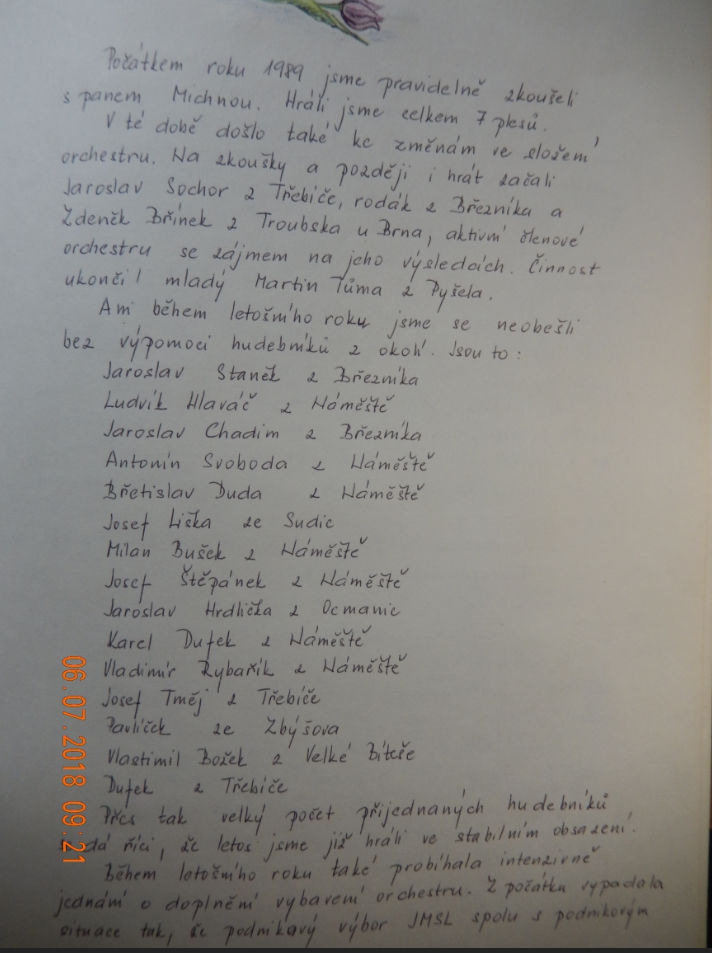 Počátkem roku 1989 jsme pravidelně zkoušeli
s panem Michnou. Hráli jsme celkem 7 plesů.
V té době došlo také ke změnám ve složení
orchestru. Na zkoušky a později i hrát začali
Jaroslav Sochor z Třebíče, rodák z Březníka a
Zdeněk Břínek z Troubska u Brna, aktivní členové
orchestru se zájmem na jeho výsledcích. Činnost
ukončil mladý Martin Tůma z Pyšela.
Ani během letošního roku jsme se neobešli
bez výpomoci hudebníků z okolí. Jsou to:
Jaroslav Staněk z Březníka
Ludvík Hlaváč z Náměště
Jaroslav Chadim z Březníka
Antonín Svoboda z Náměště
Břetislav Duda z Náměště
Josef Liška ze Sudic
Milan Bušek z Náměště
Josef Štěpánek z Náměště
Jaroslav Hrdlička z Ocmanic
Karel Dufek z Náměště
Vladimír Rybařík z Náměště
Josef Tměj z Třebíče
Pavlíček ze Zbýšova
Vlastimil Božek z Velké Bíteše
Dufek z Třebíče
Přes tak velký počet přijednaných hudebníků
se dá říci, že letos jsme již hráli ve stabilním obsazení.
Během letošního roku také probíhala intenzivně
jednání o doplnění vybavení orchestru. Z počátku vypadala
situace tak, že podnikový výbor JMSL spolu s podnikovým
06.07.2018 09:21